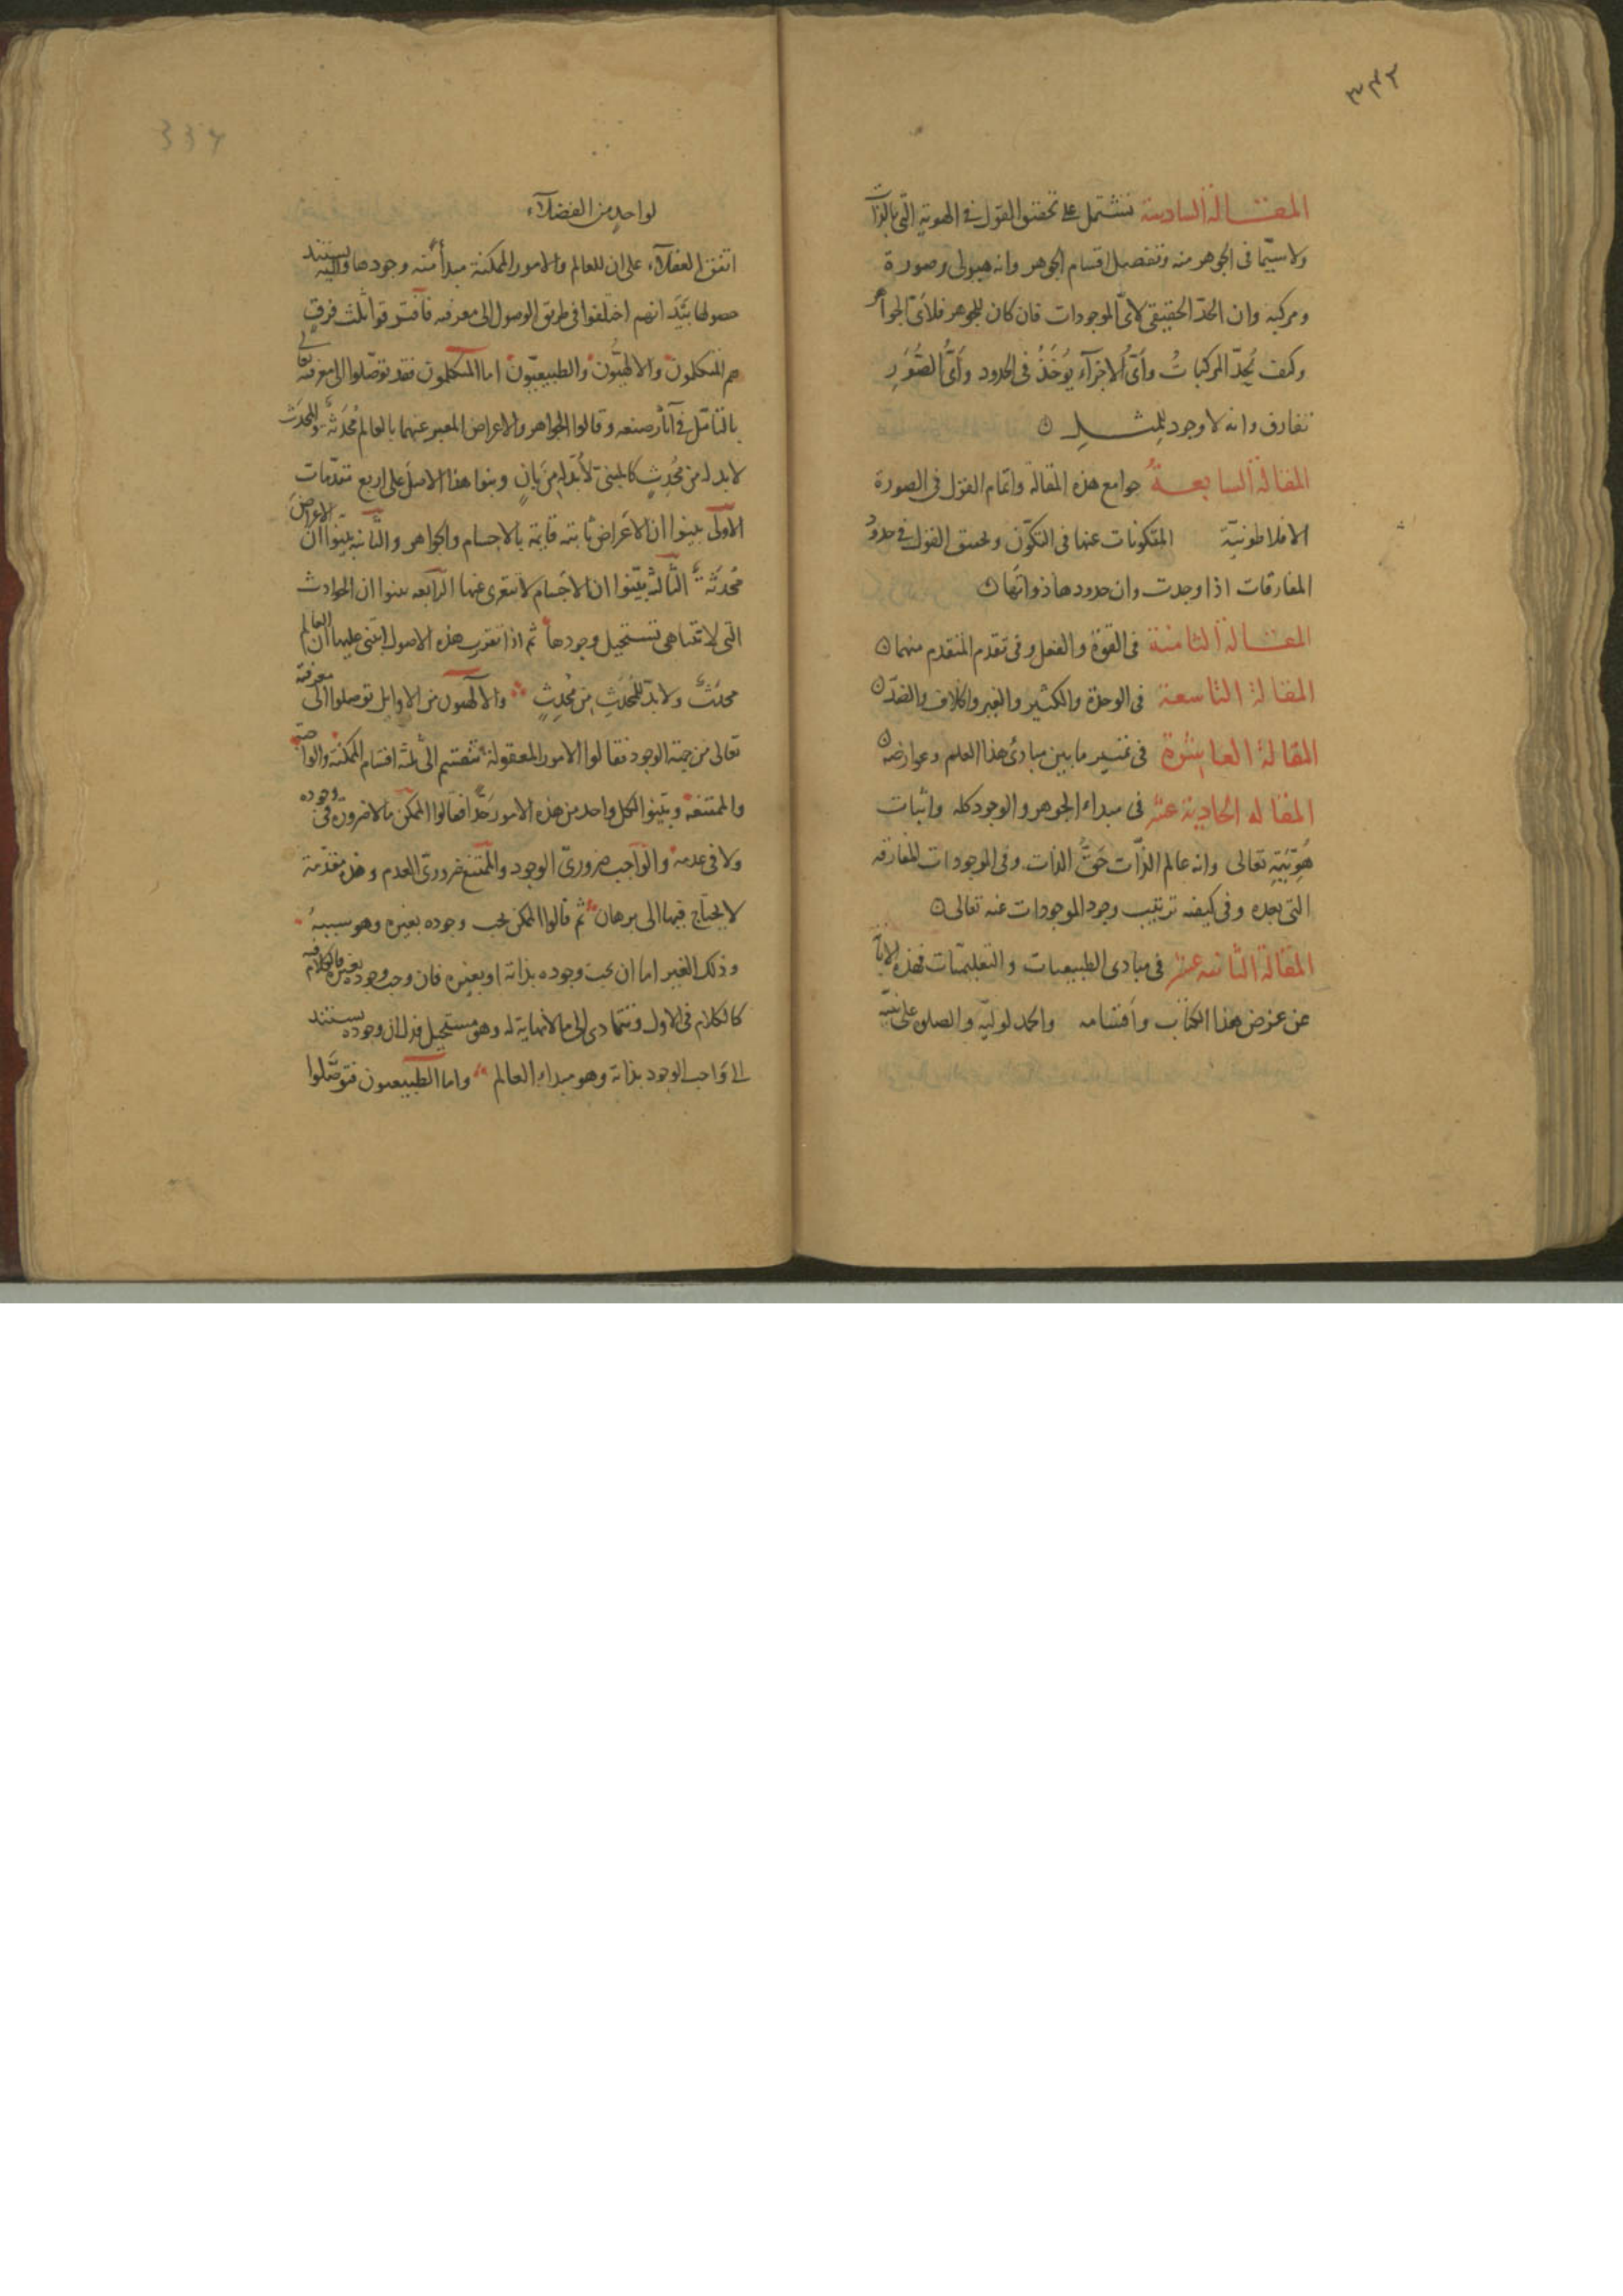 ٣٤٢
المقالة السادسة تشتمل على تحقيق القول في الهوية التي بالذات
ولاسيّما في الجوهر منه وتفصيل اقسام الجوهر وانه هيولى وصورة
ومركبة وان الحدّ الحقيقي لايّ الموجودات فان كان للجوهر فلايّ الجواهر
وكيف تُحدّ المركبات وأيّ الاجزآء يُؤخَذُ في الحدود وأيُّ الصُّوَرِ
تفارق وانه لا وجود للمثل ن
المقالة السابعة جوامع هذه المقالة واتمام القول في الصورة
الافلاطونيّة المتكونات عنها في التكوّن وتحقيق القول في حدود
المفارقات اذا وجدت وان حدودها ذواتها ن
المقالة الثامنة في القوة والفعل وفي تقدم المتقدم منهما ن
المقالة التاسعة في الوحدة والكثير والغير والخلاف والضدّ ن
المقالة العاشرة في تمييز ما بين مبادئ هذا العلم وعوارضه ن
المقاله الحادية عشر في مبداء الجوهر والوجود كله واثبات
هُويّتِه تعالى وانه عالم الذّات حَقُّ الذات وفي الموجودات المفارقه
التي بعده وفي كيفيه ترتيب وجود الموجودات عنه تعالى ن
المقالة الثانيه عشر في مبادى الطبيعيات والتعليميّات فهذه الابانة
عن غرض هذا الكتاب واقسامه والحمد لوليّه والصلوة على نبيّه
334
لواحدٍ من الفضلآء
اتفق العقلآء على ان للعالم والامور الممكنة مبدأ منه وجودها واليه يستند
حصولها بَيْدَ انهم اختلفوا في طريق الوصول الى معرفته فافترقوا ثلث فرقٍ
هم المتكلمون والالهيّون والطبيعيّون اما المتكلمون فقد توصّلوا الى معرفته تعالى
بالتأمّل في آثار صنعه وقالوا الجواهر والاعراض المعبر عنهما بالعالم مُحدَثةٌ وللمحدَث
لابد له من مُحدِثٍ كالمبنى لابُدّ له مِن بانٍ وبنوا هذا الاصل على اربع مقدّمات
الاولى بينوا ان الاعراض ثابتة قايمة بالاجسام والجواهر والثانيه بيّنوا ان الاعراض
مُحدَثةٌ الثالث بيّنوا ان الاجسام لا تتعرى عنها الرابعه بينوا ان الحوادث
التي لا تتناهى تستحيل وجودها ثم اذا تقررت هذه الاصول ابتنى عليها ان العالم
محدَثٌ ولا بدّ للمُحدَثِ مِن مُحدِثٍ والالهيون من الاوايل توصلوا الى معرفته
تعالى من جهة الوجود فقالوا الامور المعقولة تنقسم الى ثلثة اقسام الممكنة والواجبة
والممتنعة وبيّنوا لكل واحد من هذه الامور حَدًّا فقالوا الممكن ما لا ضرورة في وجوده
ولا في عدمه والواجب ضروريّ الوجود والممتنع ضروريّ العدم وهذه مقدّمة
لا يحتاج فيها الى برهان ثم قالوا الممكن يجب وجوده بغيره وهو سببهُ
وذلك الغير اما ان يجب وجوده بذاته او بغيره فان وجب وجوده بغيره فالكلام فيه
كالكلام في الاول وتتمادى الى ما لا نهاية له وهو مستحيل فذلك ان وجوده يستند
الى واجب الوجود بذاته وهو مبداء العالم واما الطبيعيون فتوصّلوا